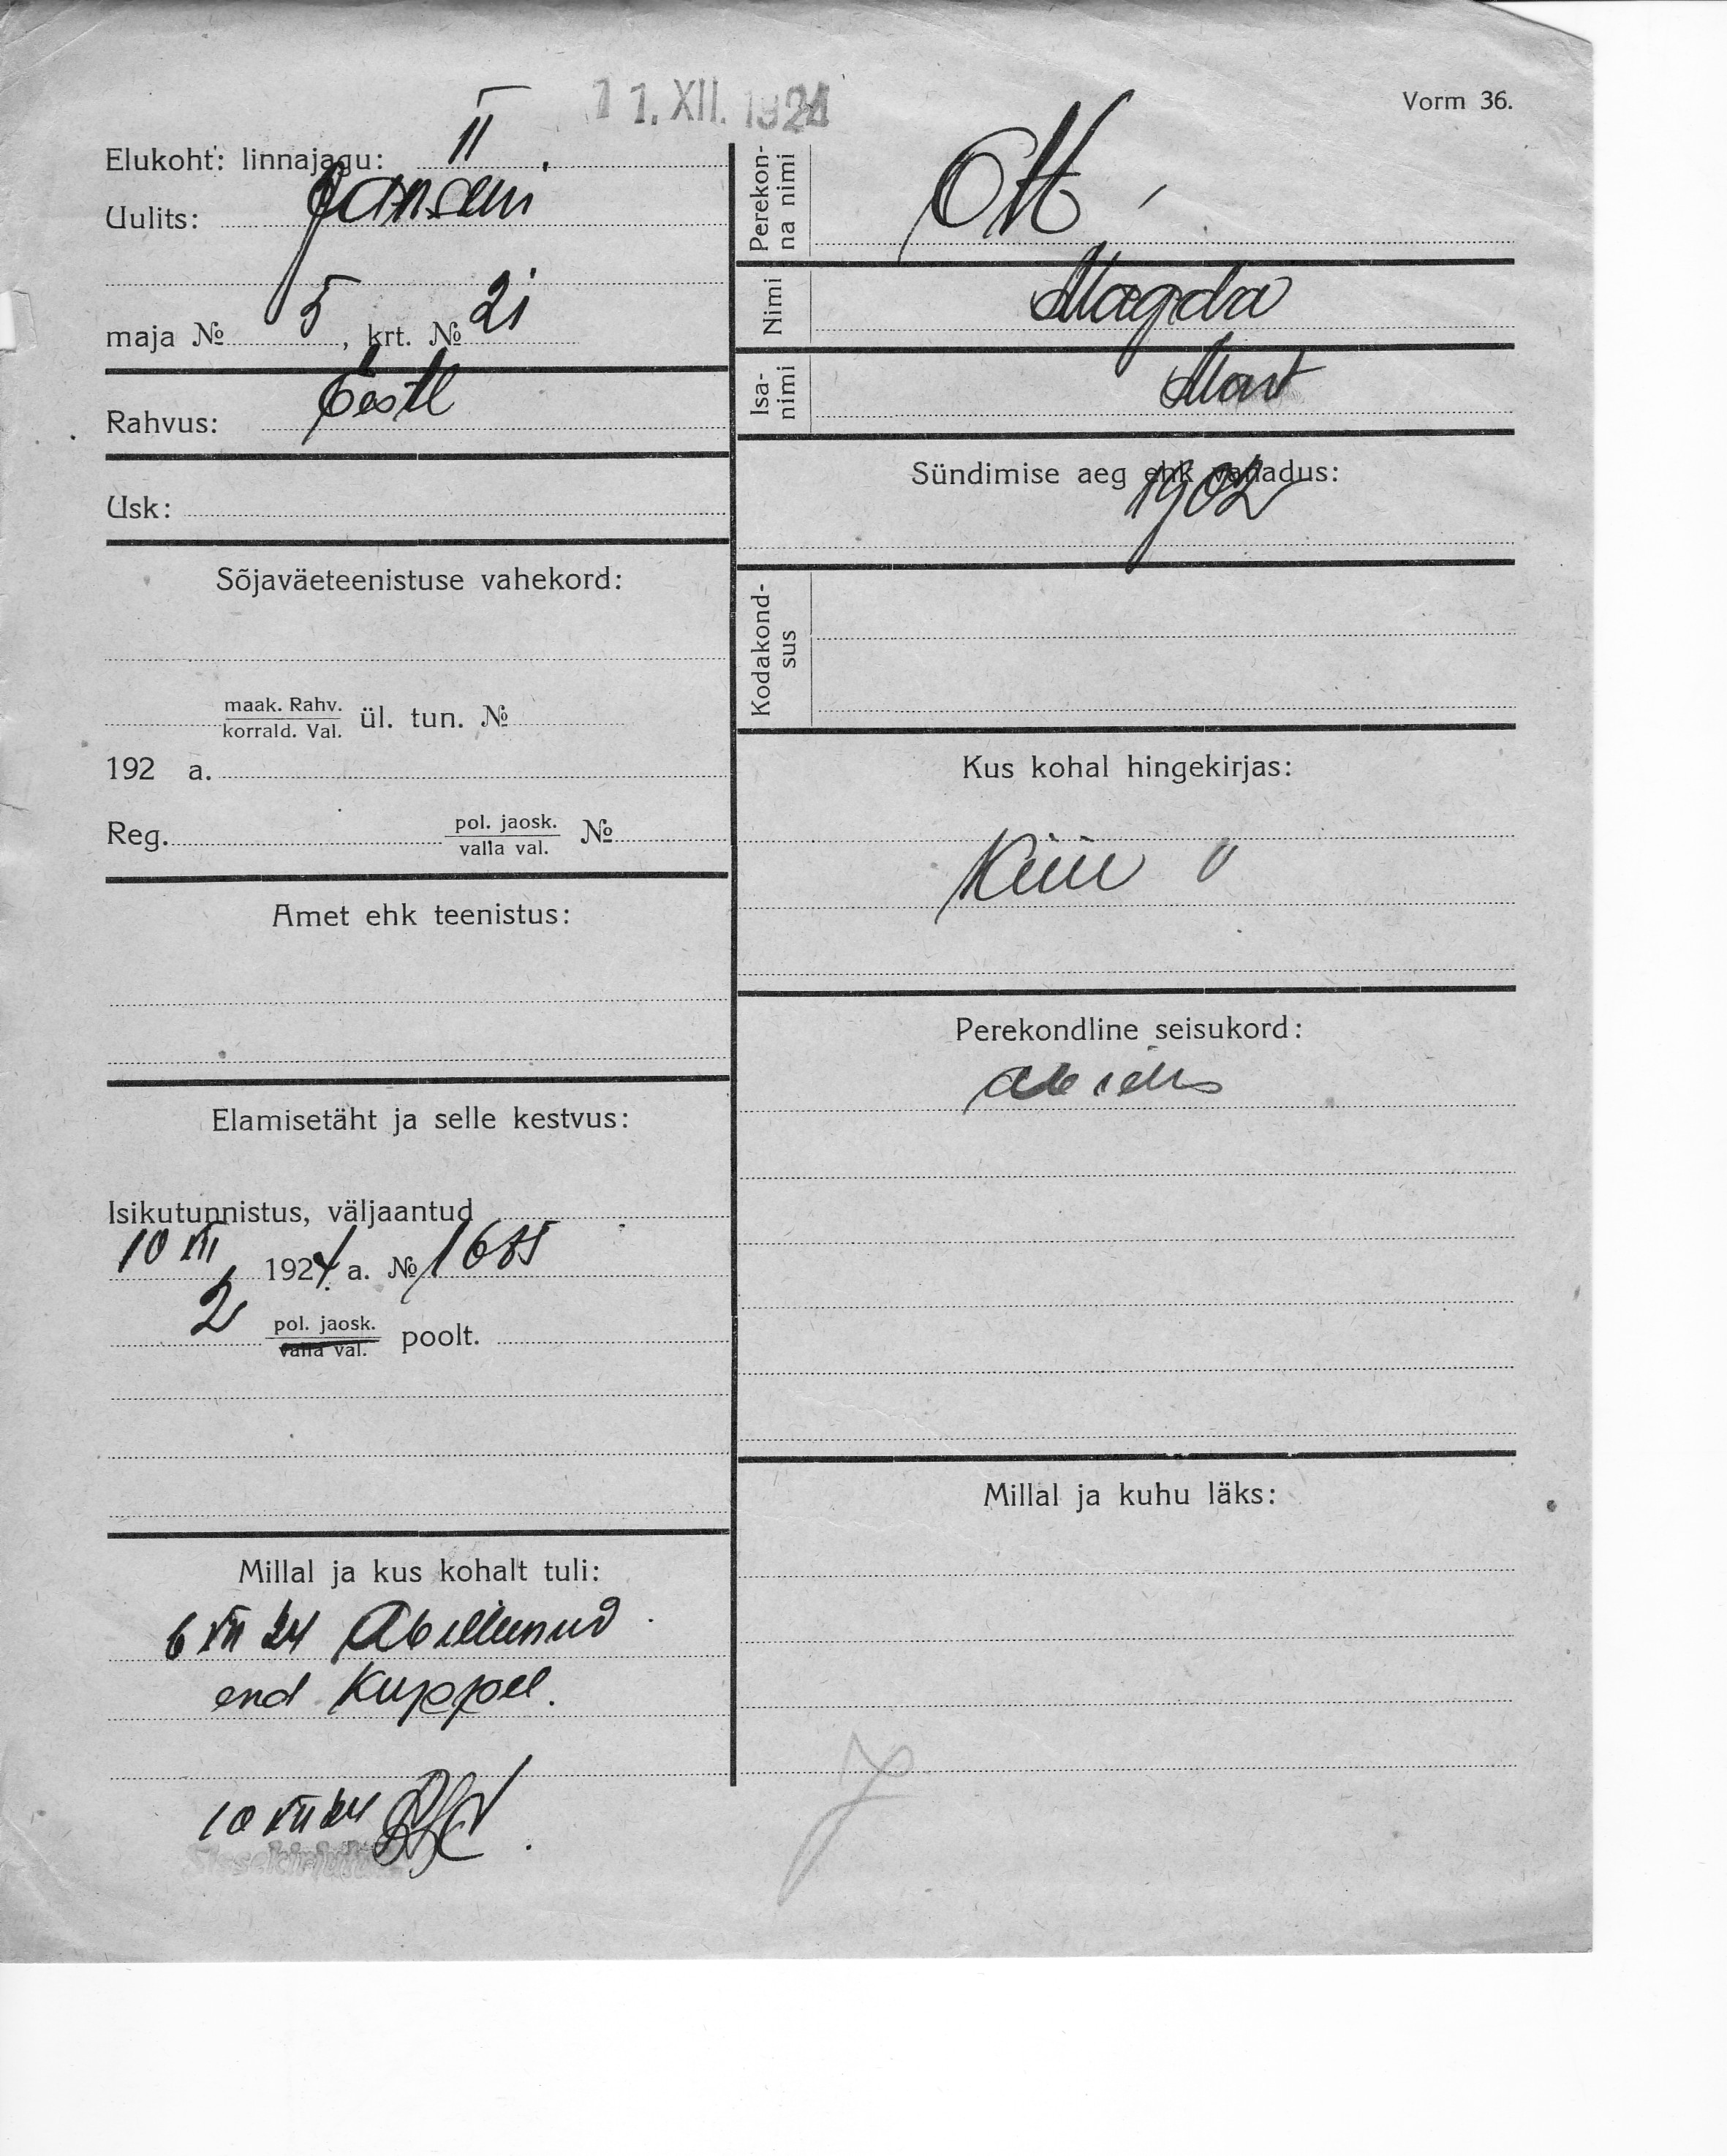 11. XII. 1924
Vorm 36.
Elukoht: linnajagu: II.
Uulits: Janseni
maja № 5, krt. № 21
Rahvus: Eestl
Usk:
Sõjaväeteenistuse vahekord:
maak. Rahv.
korrald. Val. ül. tun. №
192 a.
Reg. pol. jaosk.
valla val. №
Amet ehk teenistus:
Elamisetäht ja selle kestvus:
Isikutunnistus, väljaantud
10 XII 1924 a. № 1685
2 pol. jaosk.
valla val. poolt.
Millal ja kus kohalt tuli:
6 XII 24 Abiellunud
end Kuppel.
10 XII 24
Sissekirjutatud
Perekon-
na nimi Ott
Nimi Magda
Isa-
nimi Mart
Sündimise aeg ehk vanadus:
1902
Kodakond-
sus
Kus kohal hingekirjas:
Perekondline seisukord:
abielus
Millal ja kuhu läks: